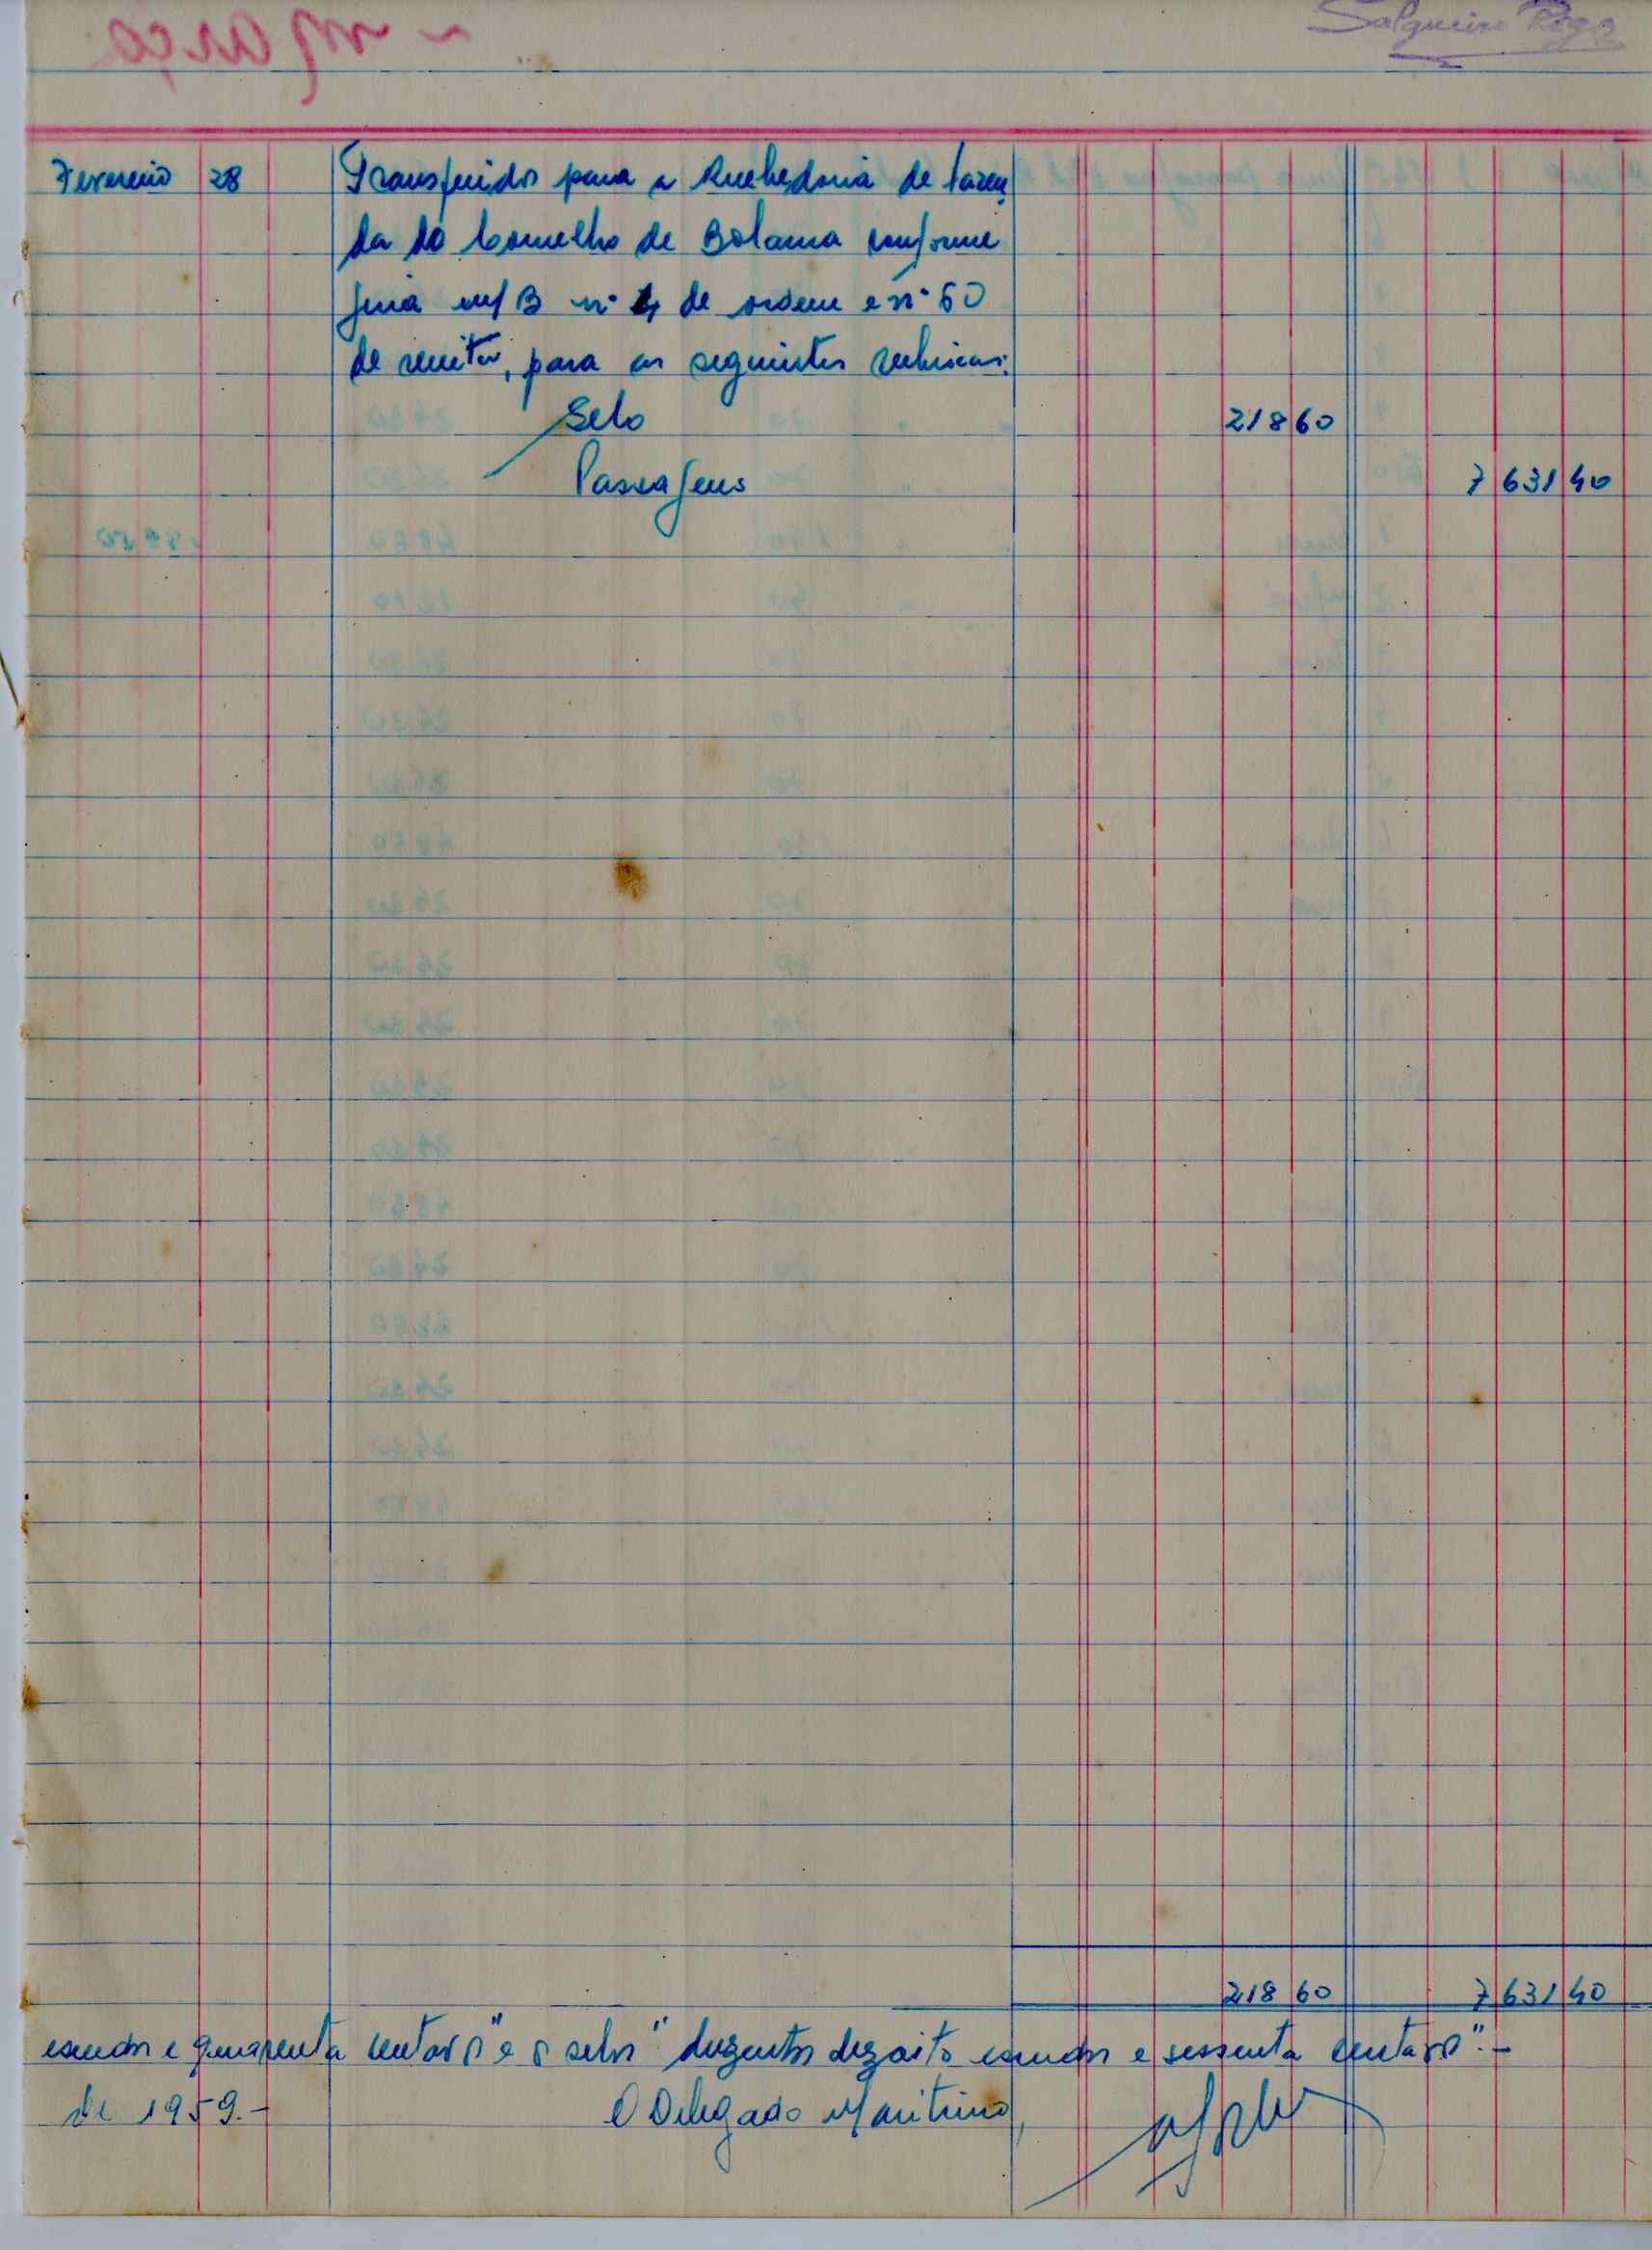 Salgueiro Rego
Fevereiro 28 Transferidos para a Recebedoria de fazen
da do Concelho de Bolama conforme
guia m/B nº 4 de ordem e nº 60
de receita, para as seguintes rubricas:
Selo 218 60
Passagens 7 631 40
218 60 7 631 40
escudos e quarenta centavos" e o selo "duzentos dezoito escudos e sessenta centavos".-
de 1959.- O Delegado Maritimo,